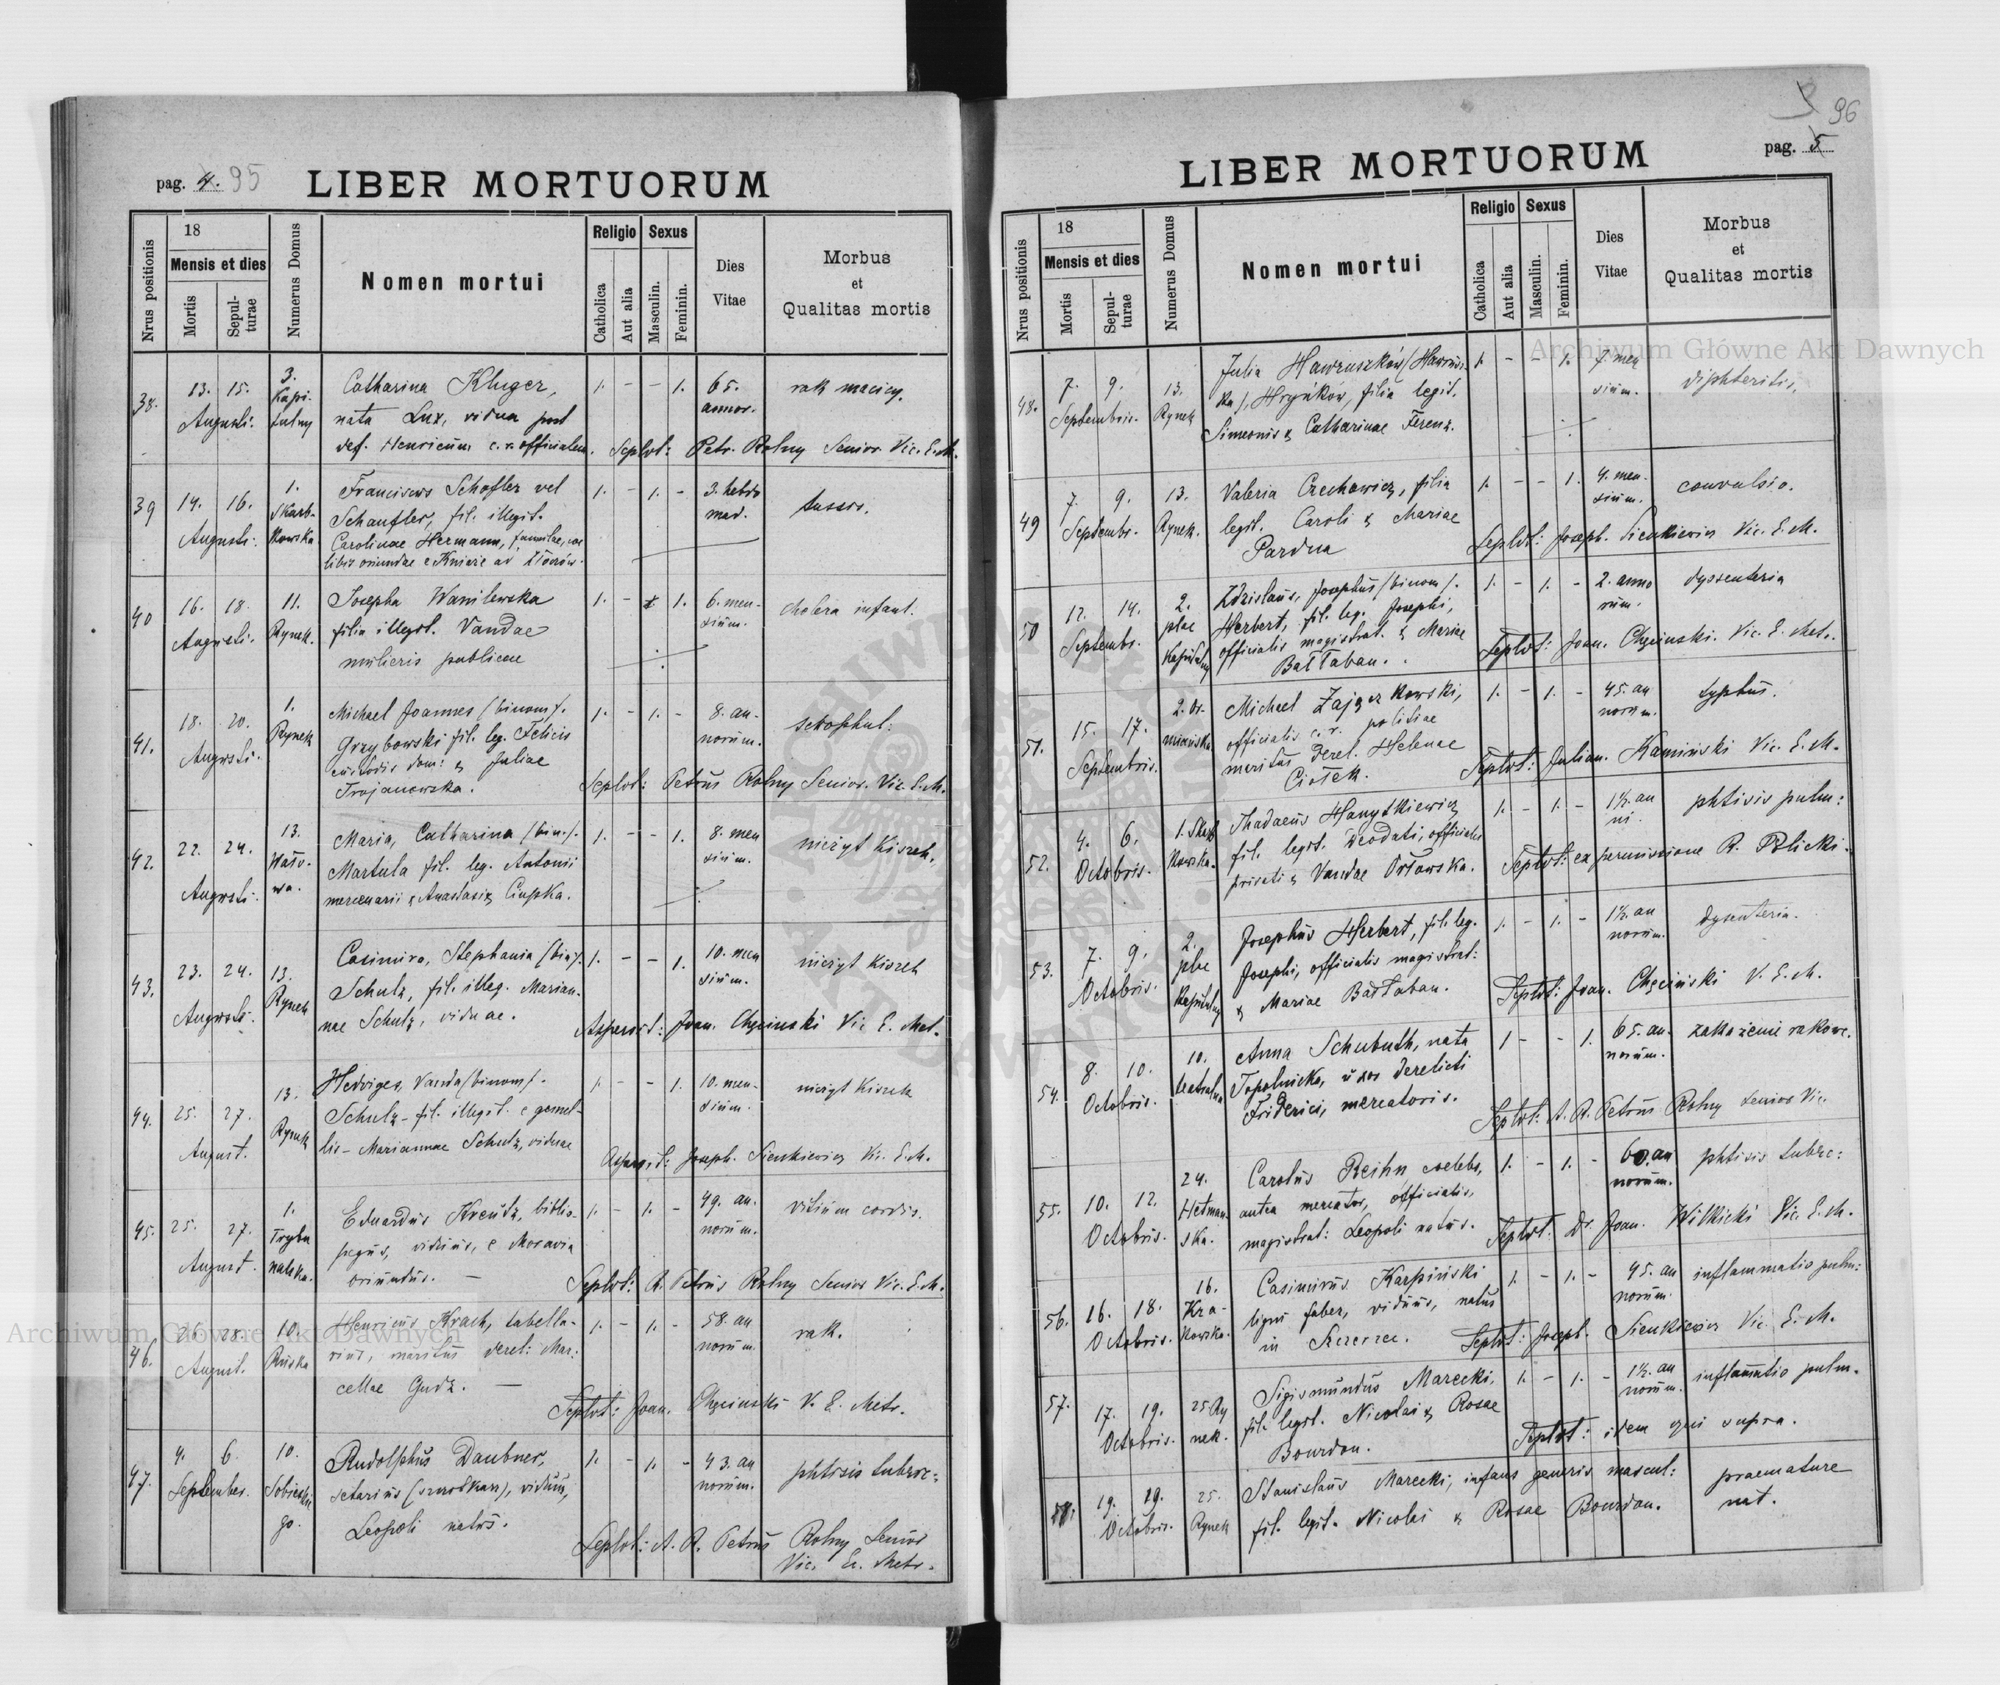 pag. 4. 95
LIBER MORTUORUM
Nrus positionis
18
Mensis et dies
Mortis
Sepulturae
Numerus Domus
Nomen mortui
Religio
Catholica
Aut alia
Sexus
Masculin.
Feminin.
Dies Vitae
Morbus
et
Qualitas mortis
38. 13. 15. Augusti. 3. Kapitulny
Catharina Kluger,
nata Lux, vidua post
def. Henricum c. r. officialem.
1. - - 1. 65. annor. rak macicy.
Seplvt: Petr. Rolny Senior Vic. E. M.
39 14. 16. Augusti. 1. Skarbkowska
Franciscus Schofler vel
Schaufler, fil. illegit.
Carolinae Hermann, famulae, coe
libis oriundae e Kniaże ad Złoczów.
1. - 1. - 3. hebdomad. tussis.
40 16. 18. Augusti. 11. Rynek.
Josepha Wasilewska
filia illegit. Vandae
mulieris publicae
1. - 1. 6. mensium. cholera infant.
41. 18. 20. Augusti. 1. Rynek
Michael Joannes (binom).
Grzybowski fil. leg. Felicis
custodis dom: & Juliae
Trojanowska.
1. - 1. - 8. annorum. skrophul:
Seplvt: Petrus Rolny Senior. Vic. E. M.
42. 22. 24. Augusti. 13.
Maria, Catharina (bin).
Martula fil. leg. Antonii
mercenarii & Anastasiae Ciupka.
1. - - 1. 8. mensium. nieżyt kiszek.
43. 23. 24. Augusti. 13. Rynek
Casimira, Stephania (bin).
Schulz, fil. illeg. Marian-
nae Schulz, viduae.
1. - - 1. 10. mensium. nieżyt kiszek
Aspersit: Joan. Chęciński Vic E. Met.
44. 25. 27. August. 13. Rynek
Hedviges, Vanda (binom).
Schulz - fil. illegit. e gemel-
lis - Mariannae Schulz, viduae
1. - - 1. 10. mensium. nieżyt kiszek
Aspersit: Joseph. Sienkiewicz Vic. E. M.
45. 25. 27. August. 1. Trybunalska.
Eduardus Kreutz, biblio-
pegus, viduus, e Moravia
oriundus. —
1. - 1. - 49. annorum. vitium cordis.
Seplvt: A. Petrus Rolny Senior Vic. E. M.
46. 26. 28. August. 10. Ruska
Henricus Krach, tabella-
rius, maritus derel: Mar:
cellae Gudz. —
1. - 1. - 58. annorum rak.
Seplvt: Joan. Chęciński V. E. Metr.
47. 4. 6. September. 10. Sobieskiego.
Rudolphus Daubner,
setarius (szmuklerz), viduus,
Leopoli natus.
1. - 1. - 43. annorum. phtisis tuberc:
Seplvt: A. R. Petrus Rolny Senior
Vic. Ec. Metr.
96
pag. 5
LIBER MORTUORUM
Nrus positionis
18
Mensis et dies
Mortis
Sepulturae
Numerus Domus
Nomen mortui
Religio
Catholica
Aut alia
Sexus
Masculin.
Feminin.
Dies Vitae
Morbus
et
Qualitas mortis
48. 7. 9. Septembris. 13. Rynek
Julia Hawruszków
Hryńków, filia legit.
Simeonis & Catharinae Ferenz.
1. - - 1. 7. mensium. diphteritis,
49 7. 9. Septembr. 13. Rynek.
Valeria Czechowicz, filia
legit. Caroli & Mariae
Pardua
1. - - 1. 4. mensium. convulsio.
Seplvt: Joseph. Sienkiewicz Vic. E. M.
50 12. 14. Septembr. 2. plac Kapitulny
Zdzislaus, Josephus (binom).
Herbert, fil. leg. Josephi,
officialis magistrat. & Mariae
Bałłaban.
1. - 1. - 2. annorum. dyssenteria
Seplvt: Joan. Chęciński. Vic. E. Met.
51. 15. 17. Septembris. 2. Ormiańska
Michael Zajączkowski,
officialis c. r. politiae
maritus derel. Helenae
Ciołek.
1. - 1. - 45. annorum. typhus.
Seplvt: Julian. Kamiński Vic. E. M.
52. 4. 6. Octobris. 1. Skarbkowska.
Thadaeus Hanytkiewicz
fil. legit. Deodati, officialis
privati & Vandae Orłowska.
1. - 1. - 1½. anni. phtisis pulm:
Seplvt: ex permissione R. Policki.
53. 7. 9. Octobris. 2. plac Kapitulny
Josephus Herbert, fil. leg.
Josephi, officialis magistrat:
& Mariae Bałłaban.
1. - 1. - 1½. annorum. dysenteria.
Seplvt: Joan. Chęciński V. E. M.
54. 8. 10. Octobris. 10. teatralna
Anna Schubuth, nata
Topolnicka, uxor derelicti
Friderici, mercatoris.
1 - - 1. 65. annorum. zakażenie rakowe.
Seplvt: A. R. Petrus Rolny Senior Vic.
55. 10. 12. Octobris. 24. Hetmanska.
Carolus Reihn coelebs,
antea mercator, officialis,
magistrat: Leopoli natus.
1. - 1. - 60. annorum. phtisis tuberc:
Seplvt: Dr. Joan. Wilkicki Vic. E. M.
56. 16. 18. Octobris. 16. Krakowska.
Casimirus Karpiński
ligni faber, viduus, natus
in Szczerzec.
1. - 1. - 45. annorum. inflammatio pulm:
Seplvt: Joseph. Sienkiewicz Vic. E. M.
57. 17. 19. Octobris. 25 Rynek.
Sigismundus Marecki,
fil. legit. Nicolai & Rosae
Bourdon.
1. - 1. - 1½. annorum. inflammatio pulm.
Seplvt: idem qui supra.
58. 19. 19. Octobris. 25. Rynek
Stanislaus Marecki, infans generis mascul:
fil. legit. Nicolai & Rosae Bourdon.
praemature
nat.
Archiwum Główne Akt Dawnych
Archiwum Główne Akt Dawnych